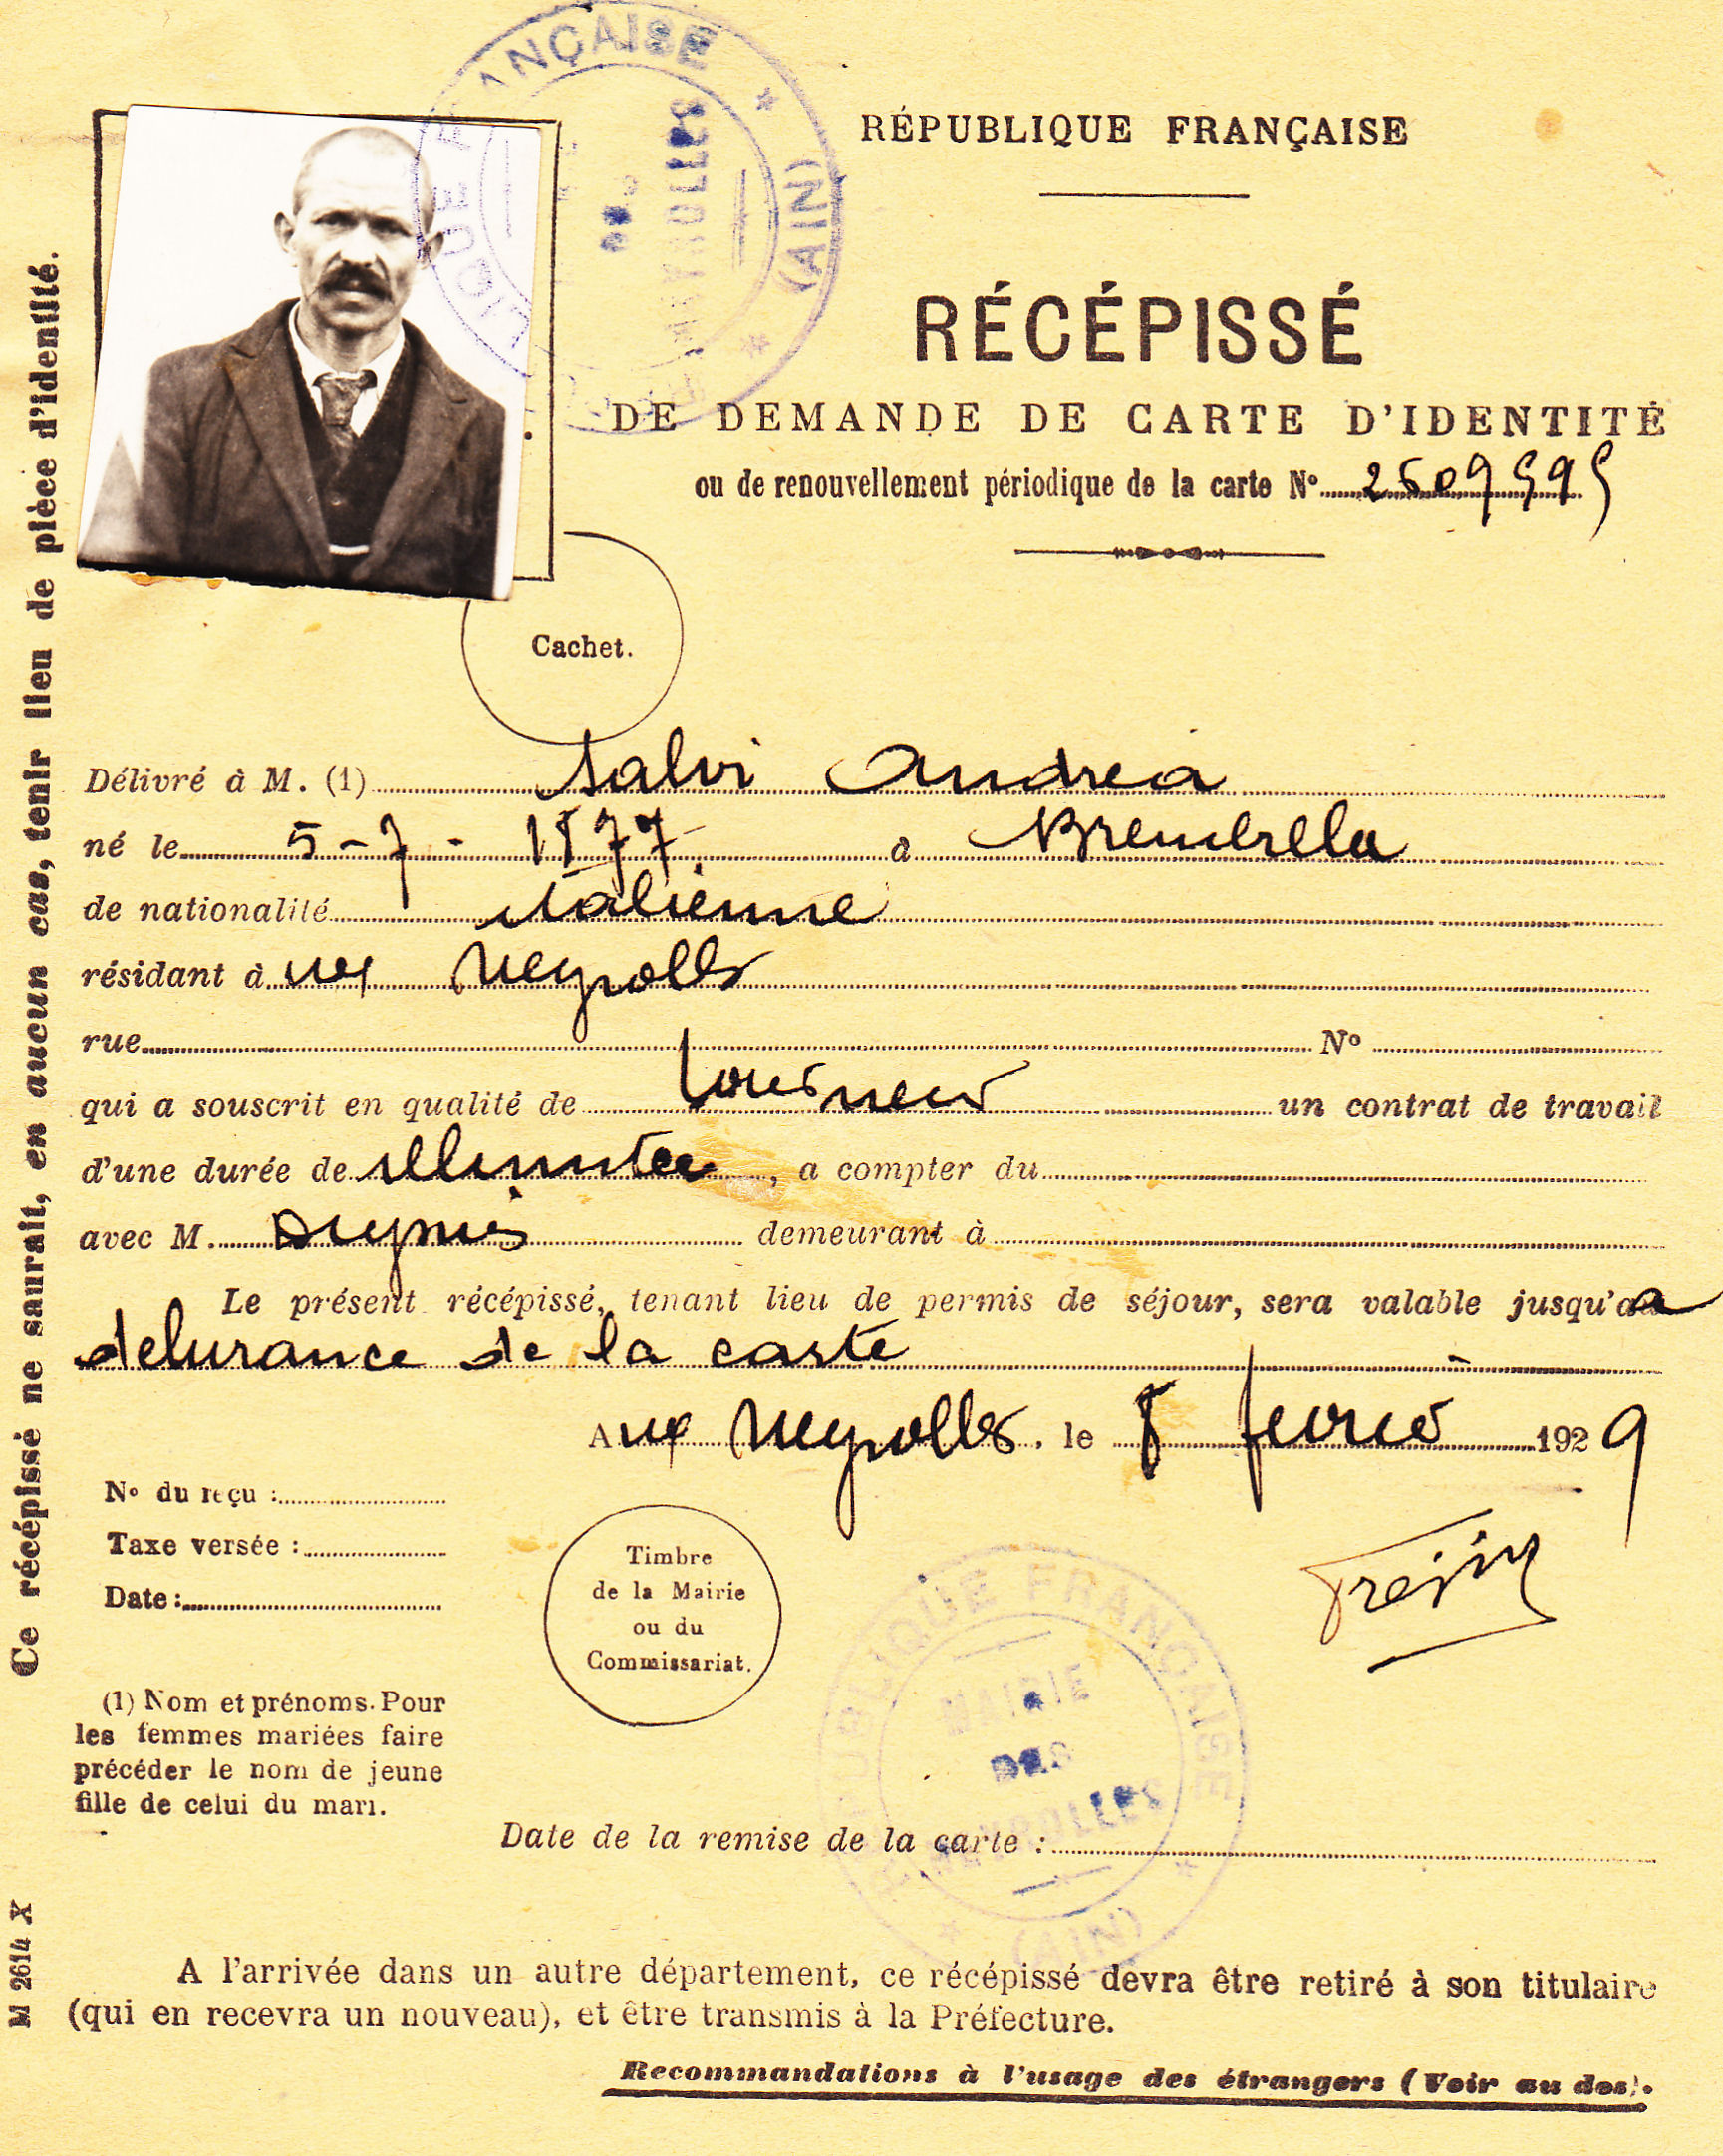 RÉPUBLIQUE FRANÇAISE
RÉCÉPISSÉ
DE DEMANDE DE CARTE D'IDENTITÉ
ou de renouvellement périodique de la carte No 2609595
FRANÇAISE
(AIN)
Cachet.
Délivré à M. (1) Salvi Andrea
né le 5-7-1877 à Brembilla
de nationalité italienne
résidant à ux Neyrolles
rue No
qui a souscrit en qualité de tourneur un contrat de travail
d'une durée de illimitée, a compter du
avec M. Dupuis demeurant à
Le présent récépissé, tenant lieu de permis de séjour, sera valable jusqu'a
delivrance de la carte
Aux Neyrolles, le 8 fevrier 1929
No du reçu :
Taxe versée :
Date :
Timbre
de la Mairie
ou du
Commissariat.
RÉPUBLIQUE FRANÇAISE
MAIRIE
DES
NEYROLLES
(AIN)
(1) Nom et prénoms. Pour
les femmes mariées faire
précéder le nom de jeune
fille de celui du mari.
Date de la remise de la carte :
A l'arrivée dans un autre département, ce récépissé devra être retiré à son titulaire
(qui en recevra un nouveau), et être transmis à la Préfecture.
Recommandations à l'usage des étrangers (Voir au dos).
Ce récépissé ne saurait, en aucun cas, tenir lieu de pièce d'identité.
M 2614 X